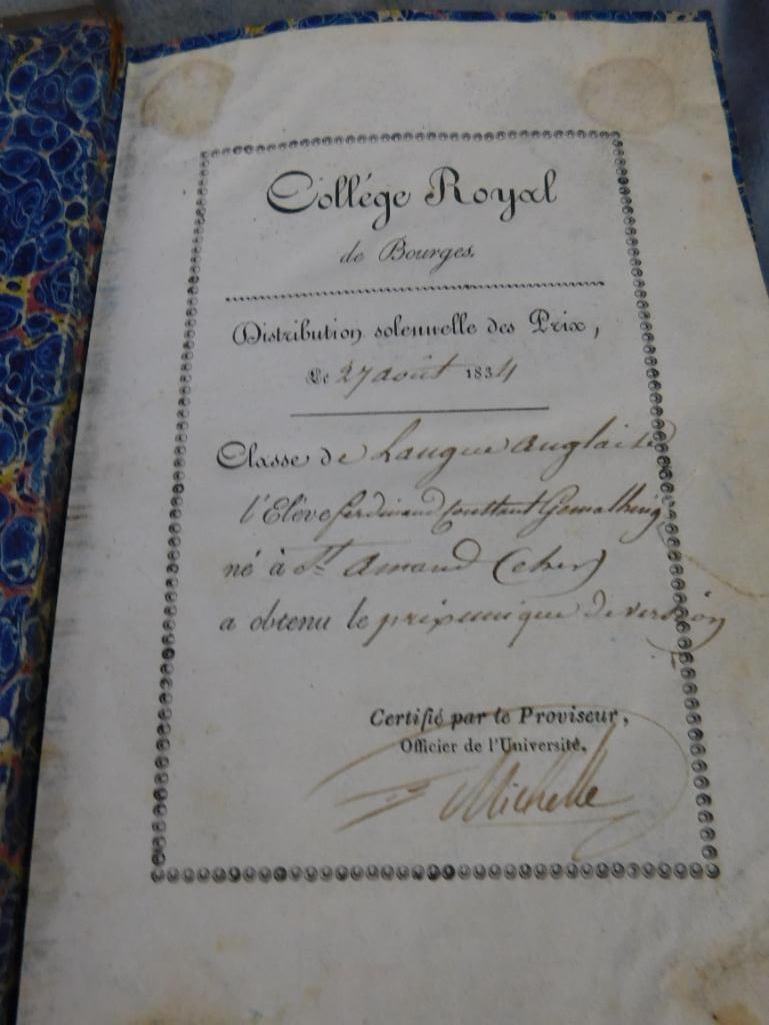 Collége Royal
de Bourges.
Distribution solennelle des Prix,
Le 27 août 1834
Classe de Langue anglaise
l'Elève ferdinand Constant
né à St. Amand (cher)
a obtenu le prix unique de version
Certifié par le Proviseur,
Officier de l'Université,
Michelle